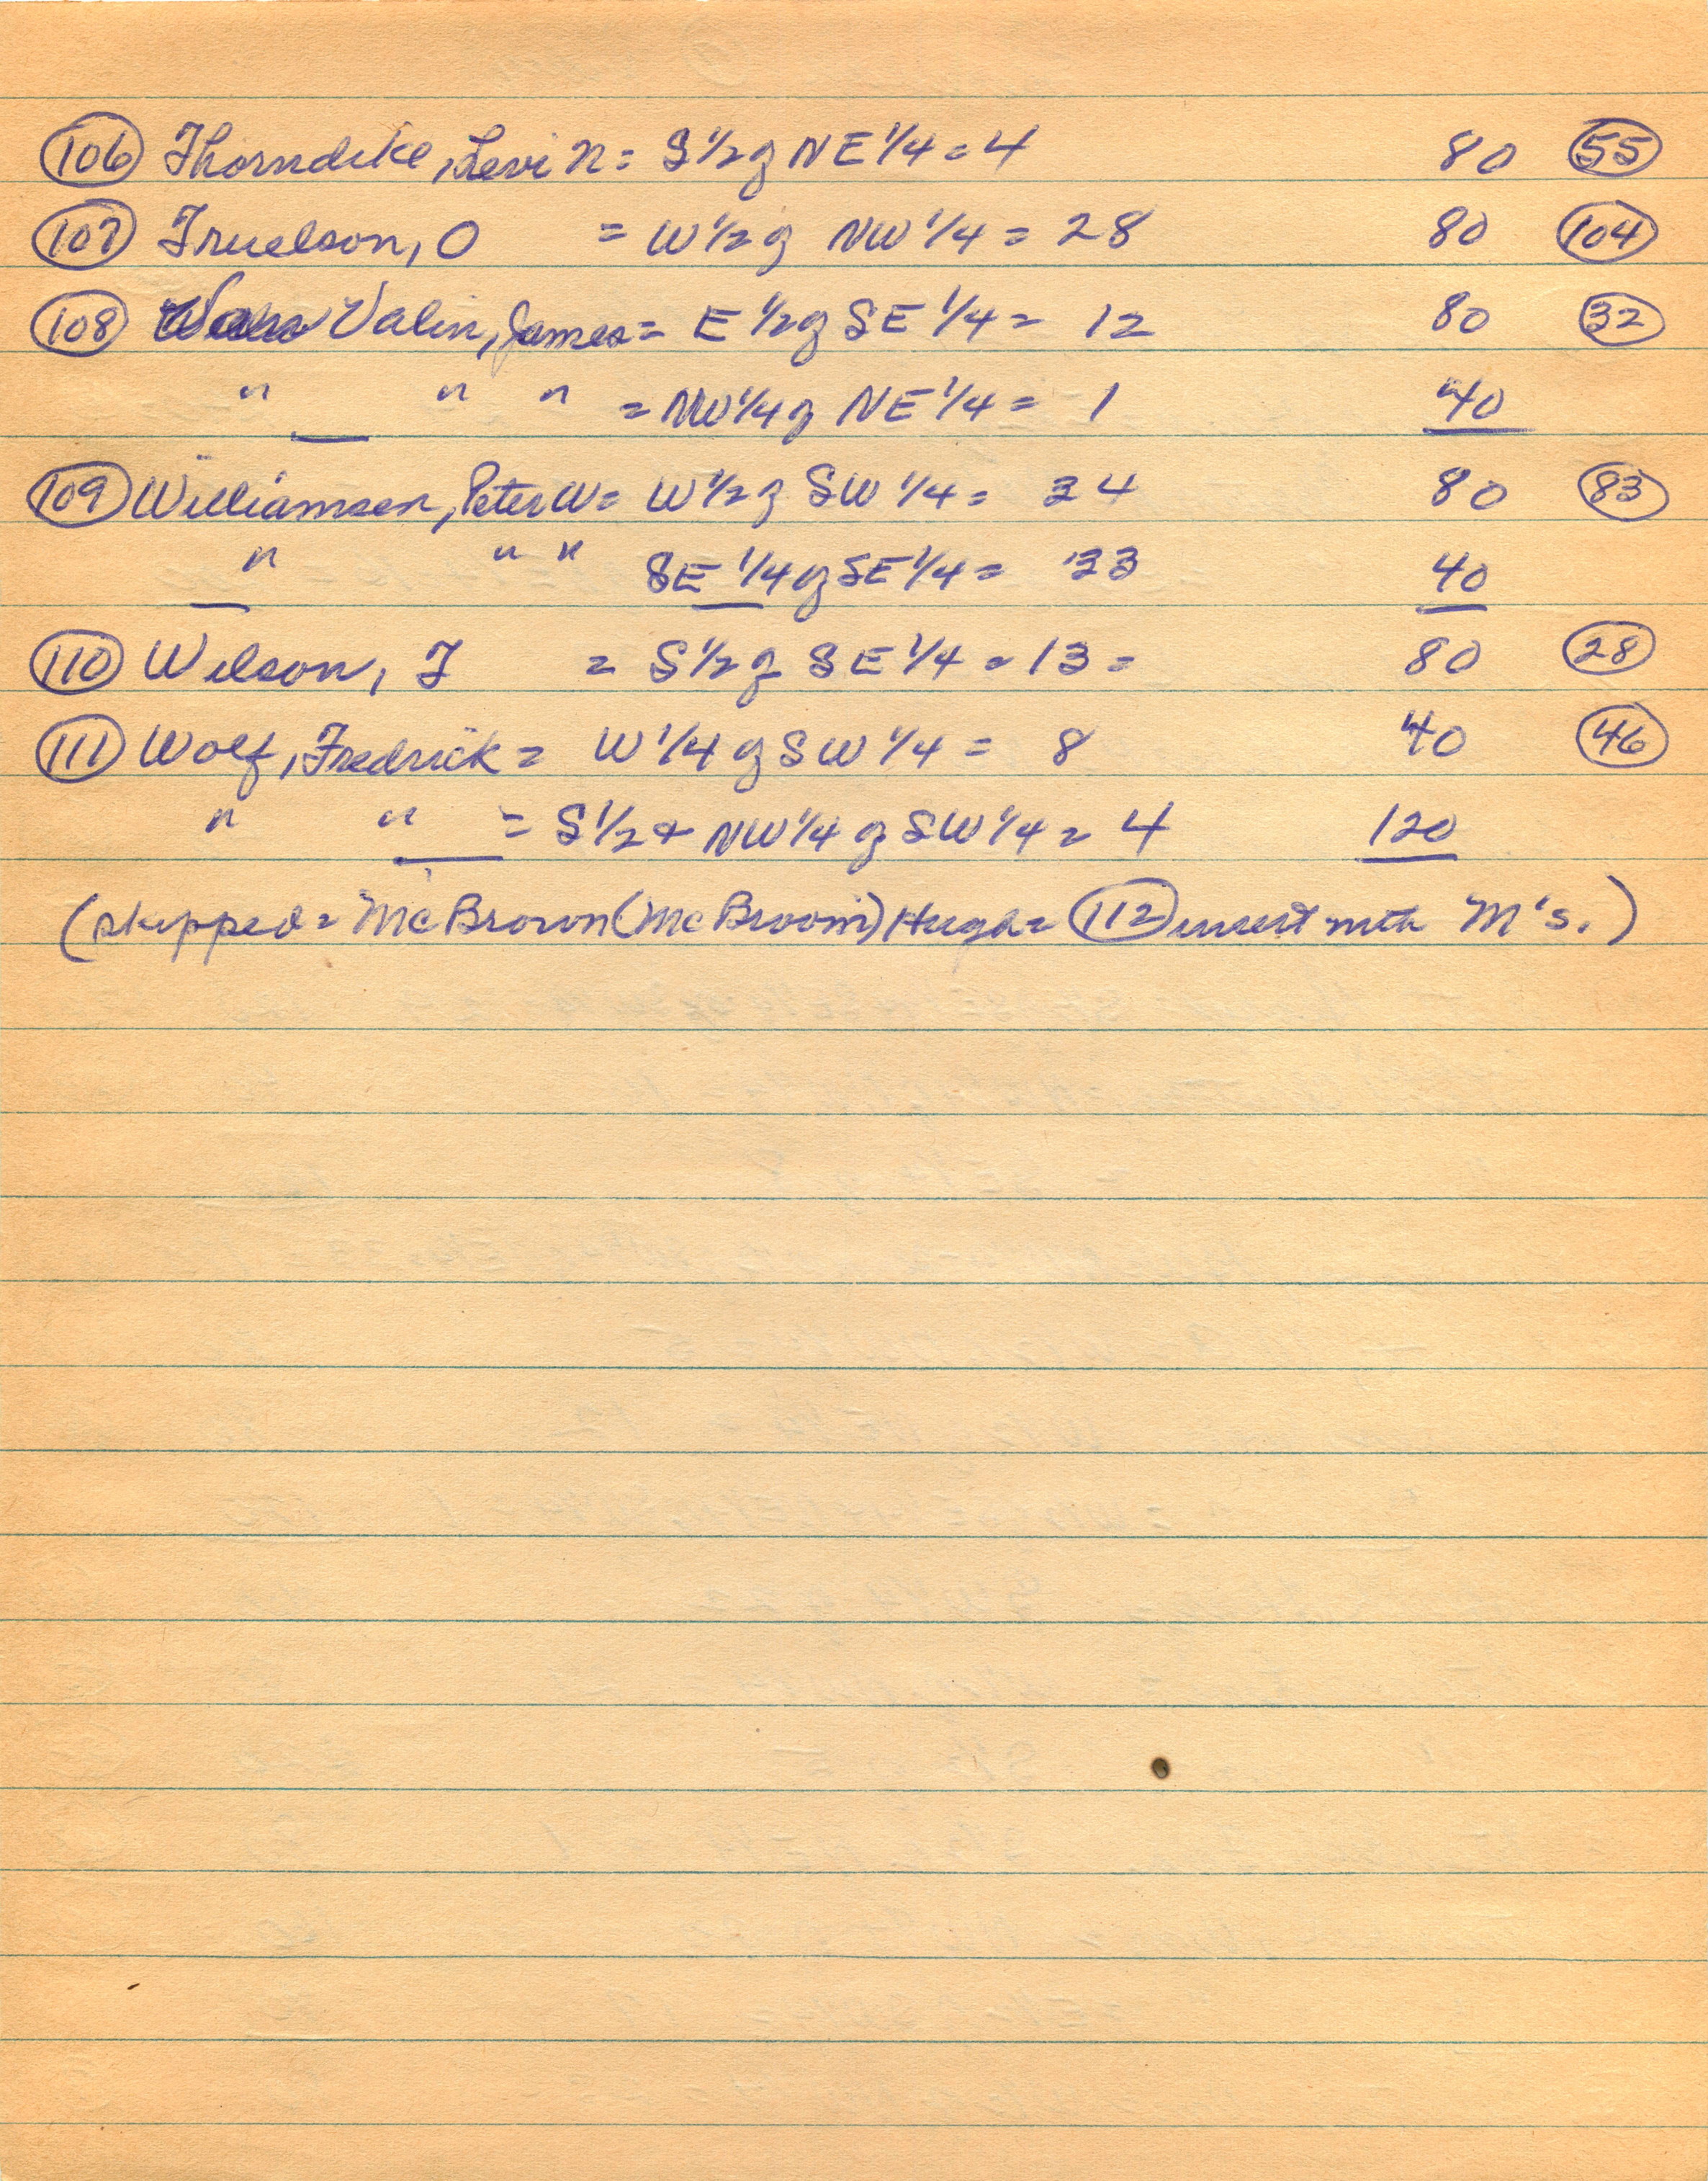 106 Thorndike, Levi N = S 1/2 of NE 1/4 = 4 80 55
107 Truelson, O = W 1/2 of NW 1/4 = 28 80 104
108 Valin, James = E 1/2 of SE 1/4 = 12 80 32
" " " = NW 1/4 of NE 1/4 = 1 40
109 Williamsen, Peter W = W 1/2 of SW 1/4 = 34 80 83
" " " SE 1/4 of SE 1/4 = 33 40
110 Wilson, T = S 1/2 of SE 1/4 = 13 = 80 28
111 Wolf, Fredrick = W 1/4 of SW 1/4 = 8 40 46
" " = S 1/2 + NW 1/4 of SW 1/4 = 4 120
(skipped = McBrown (McBroom) Hugh = 112 insert with M's.)